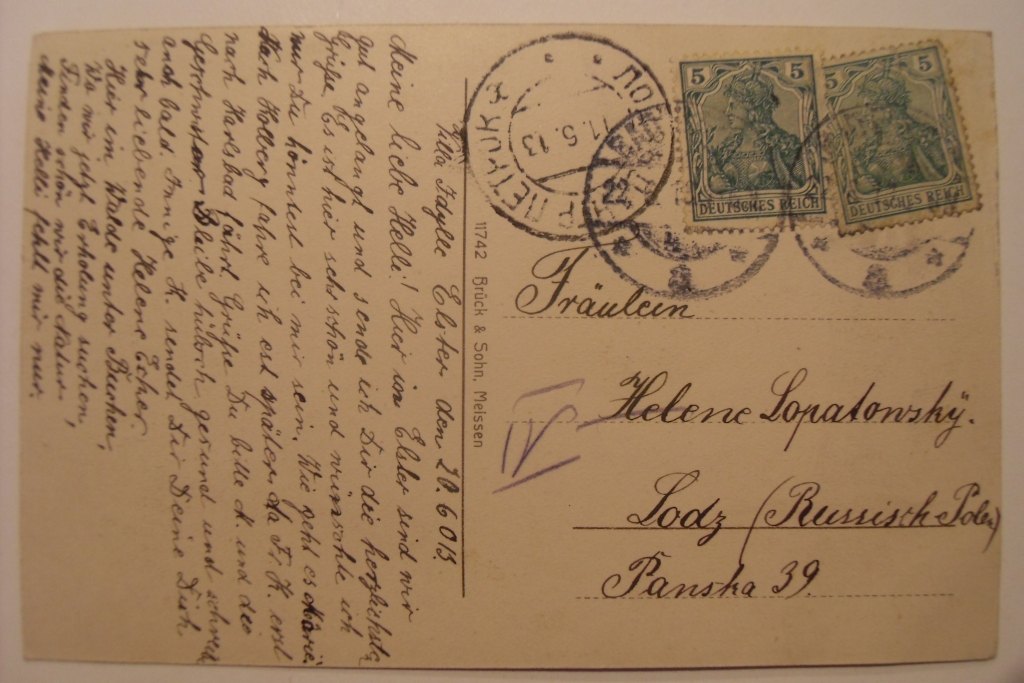 Villa Idylle Elster den 20.6013.
Meine liebe Helli! Hier in Elster sind wir
gut angelangt und sende ich Dir die herzlichste
Grüße. Es ist hier sehr schön und wünschte ich
nur Du könntest bei mir sein. Wie geht es Marie.
Nach Kolberg fahre ich erst später, da F. K. erst
nach Karlsbad fährt. Grüße Du bitte M. und die
Geschwister. Bleibe hübsch gesund und schreib
auch bald. Innige K. sendet Dir Deine Dich
sehr liebende Helene Echer.
Hier im Walde unter Buchen,
Wo wir jetzt Erholung suchen,
Finden schön wir die Natur,
Meine Helli fehlt mir nur.
11742 Brück & Sohn, Meissen
11.6.13
22
5 5
DEUTSCHES REICH
5 5
DEUTSCHES REICH
Fräulein
Helene Lopatowský.
Lodz (Russisch Polen)
Panska 39.